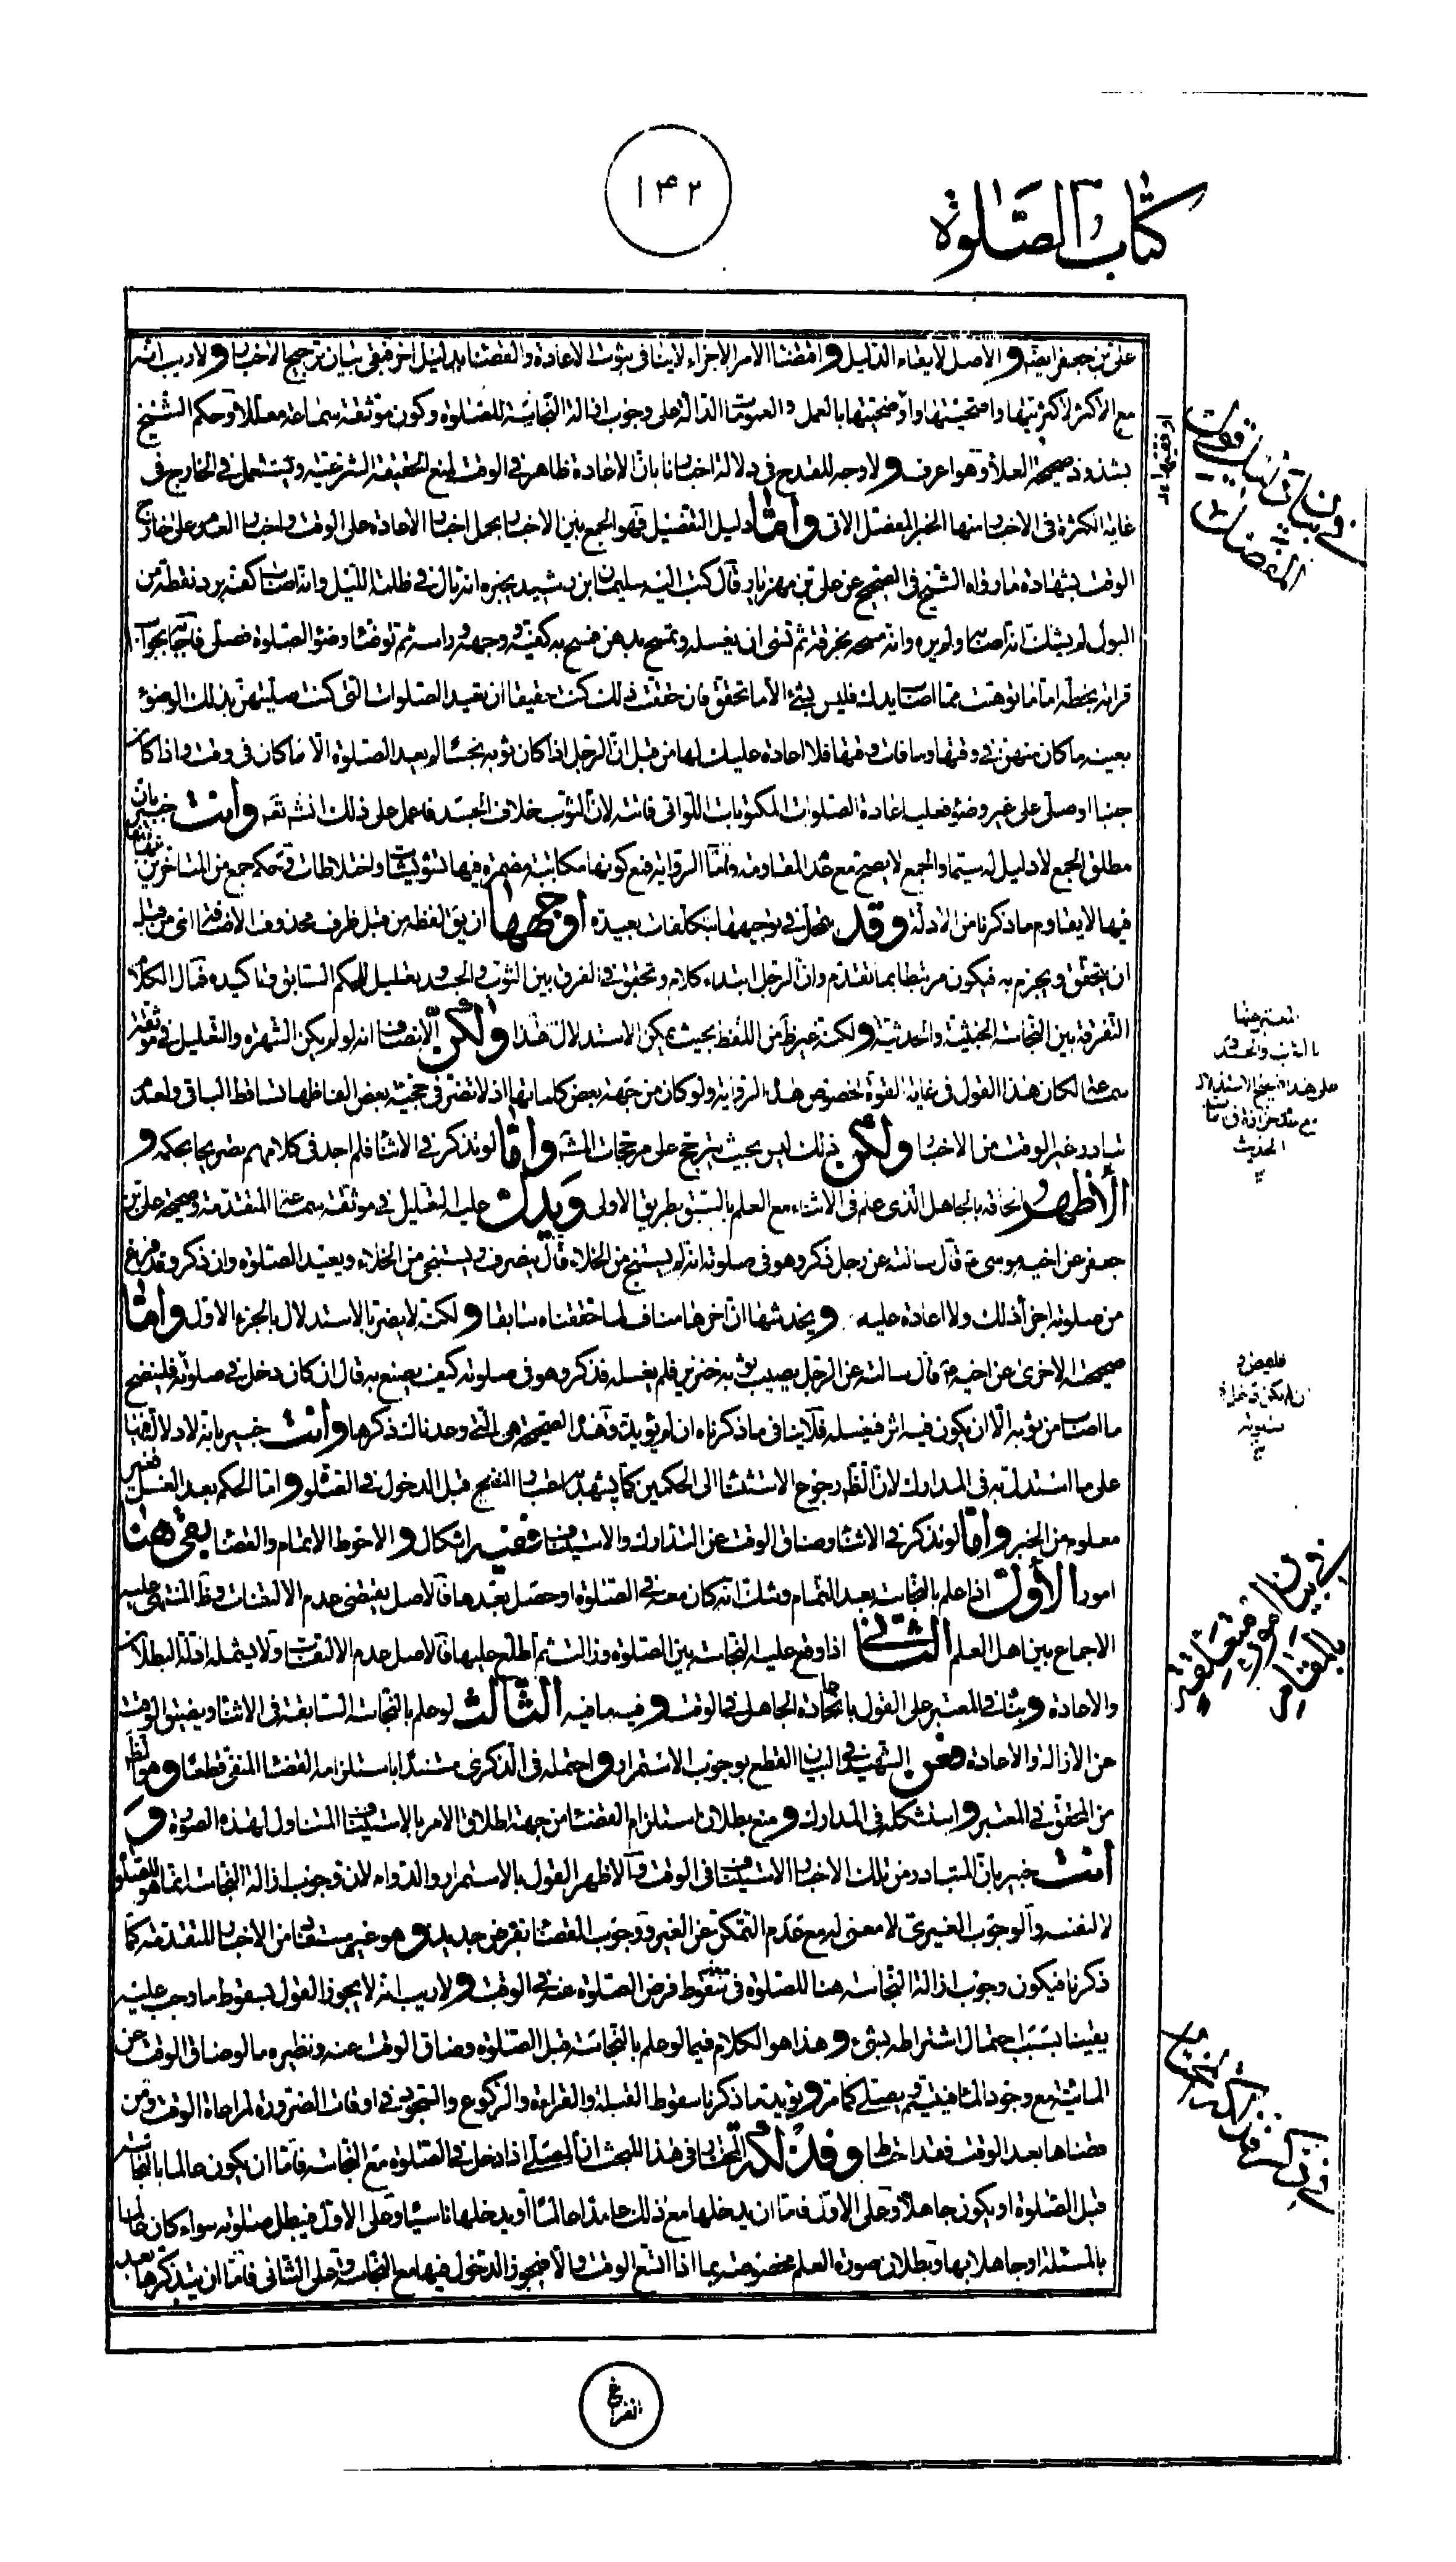 كتاب الصّلوة
١۴٢
على بن جعفر ايضه و الاصل لا يفاء الدليل و اقتضاء الامر الاجزاء لا ينافى ثبوت الاعادة والقضاء بدليل اخر فبقى بيان ترجيح الاخبار و لا ريب انه
مع الاكثر لاكثريتها واصحيتها واوضحيتها بالعمل والعمومات الدالة على وجوب ازالة النجاسة للصلوة وكون موثقة سماعة معللا وحكم الشيخ
بشذوذ صحيحة العلا وهو اعرف و لا وجه للقدح فى دلالة اخبارنا بان الاعادة ظاهر فى الوقت لمنع الحقيقة الشرعية ويستعمل فى الخارج فى
غاية الكثرة فى الاخبار منها الخبر المفصل الاتى و أمّا دليل التفصيل فهو الجمع بين الاخبار بحمل اخبار الاعادة على الوقت واخبار العدم على خارج
الوقت بشهادة ما رواه الشيخ فى الصحيح عن على بن مهزيار قال كتب اليه سليمان بن رشيد يخبره انه بال فى ظلمة الليل وانه اصاب كفه برد نقطة من
البول لم يشك انه اصابه ولم يره وانه مسحه بخرقة ثم نسى ان يغسله وتمسح بدهن فمسح به كفيه ووجهه وراسه ثم توضا وضوء الصلوة فصلى فاجابه بجواب
قراته بخطه اما ما توهمت مما اصاب يدك فليس بشئ الا ما تحقق فان حققت ذلك كنت حقيقا ان تعيد الصلوات التى كنت صليتهن بذلك الوضوء
بعينه ما كان منهن فى وقتها وما فات وقتها فلا اعادة عليك لها من قبل ان الرجل اذا كان ثوبه نجسا لم يعد الصلوة الا ما كان فى وقت واذا كان
جنبا او صلى على غير وضوء فعليه اعادة الصلوات المكتوبات اللواتى فاتته لان الثوب خلاف الجسد فاعمل على ذلك انشه تعه و أنت خبير بان
مطلق الجمع لا دليل له سيما والجمع لا يصح مع عدم المقاومة واما الرواية فمع كونها مكاتبة مضمرة فيها تشويشات واختلاطات قد حكم جمع من المتاخرين
فيها لا يقاوم ما ذكرنا من الادلة و قد يتمحل فى توجيهها بتكلفات بعيدة أوجهها ان يق لفظة من قبل ظرف محذوف الاضافة اى من قبله
ان يتحقق ويجزم به فيكون مرتبطا بما تقدم وان الرجل ابتداء كلام وتحقق فى الفرق بين الثوب والجسد تعليل للحكم السابق وتاكيده فمال الكلام
التفرقة بين النجاسة الخبثية والحدثية و لكنه غير ظ من اللفظ بحيث يمكن الاستدلال هذا و لكن الانصاف انه لو لم يكن الشهرة والتعليل فى موثقة
سماعة لكان هذا القول فى غاية القوة لخصوص هذه الرواية ولو كان من جهة بعض كلماتها اذ لا تضر فى حجية بعض الفاظها تساقط الباقى ولعدم
تبادر غير الوقت من الاخبار و لكن ذلك ليس بحيث يترجح على مرجحات المشه و أمّا لو تذكر فى الاثناء فلم اجد فى كلامهم تصريحا بحكمه و
الأظهر الحاقه بالجاهل الذى علم فى الاثناء مع العلم بالسبق بطريق الاولى و يدل عليه التعليل فى موثقة سماعة المتقدمة وصحيحة على بن
جعفر عن اخيه موسى ع قال سالته عن رجل ذكر وهو فى صلوته انه لم يستنج من الخلاء قال ينصرف ويستنجى من الخلاء ويعيد الصلوة وان ذكر وقد فرغ
من صلوته اجزأ ذلك ولا اعادة عليه و يخدشها ان اخرها مناف لما حققناه سابقا و لكنه لا يضر بالاستدلال بالجزء الاول و أمّا
صحيحته الاخرى عن اخيه ع قال سالته عن الرجل يصيب ثوبه خنزير فلم يغسله فذكر وهو فى صلوته كيف يصنع به قال ان كان دخل فى صلوته فلينضح
ما اصاب من ثوبه الا ان يكون فيه اثر فيغسله فلا ينافى ما ذكرناه ان لم يؤيده وهذه الصحيحة هى التى وعدناك ذكرها و أنت خبير بانه لا دلالة فيها
على ما استدل به فى المدارك لان الظ رجوع الاستثناء الى الحكمين كما يشهد به اعتبار النضح قبل الدخول فى الصلوة و اما الحكم بعد الغسل فغير
معلوم من الخبر و أمّا لو تذكر فى الاثناء وضاق الوقت عن التدارك والاستيناف ففيه اشكال و الاحوط الاتمام والقضاء بقى هنا
امور الأول اذا علم بالنجاسة بعد التمام وشك انه كان معه فى الصلوة او حصل بعدها فالاصل يقتضى عدم الالتفات وظ المنتهى عليه
الاجماع بين اهل العلم الثانى اذا وقع عليه النجاسة بين الصلوة وزالت ثم اطلع عليها فالاصل عدم الالتفات ولا يشمله ادلة البطلان
والاعادة و بناه فى المعتبر على القول باعادة الجاهل فى الوقت و فيه ما فيه الثالث لو علم بالنجاسة السابقة فى الاثناء ويضيق الوقت
عن الازالة والاعادة فعن الشهيد فى البيان القطع بوجوب الاستمرار و احتمله فى الذكرى مستندا باستلزامه القضاء المنفى قطعا و هو الظ
من المحقق فى المعتبر و استشكله فى المدارك و منع بطلان استلزام القضاء من جهة اطلاق الامر بالاستيناف المتناول لهذه الصورة و
أنت خبير بان المتبادر من تلك الاخبار الاستيناف فى الوقت والاظهر القول بالاستمرار والدوام لان وجوب ازالة النجاسة انما هو للصلوة
لا لنفسه والوجوب الغيرى لا معنى له مع عدم التمكن عن الغير ووجوب القضاء بفرض جديد و هو غير مستفاد من الاخبار المتقدمة كما
ذكرنا فيكون وجوب ازالة النجاسة هنا للصلوة فى سقوط فرض الصلوة عنه فى الوقت و لا ريب انه لا يجوز القول بسقوط ما وجب عليه
يقينا بسبب احتمال اشتراطه بشئ و هذا هو الكلام فيما لو علم بالنجاسة قبل الصلوة وضاق الوقت عنه ونظيره ما لو ضاق الوقت عن
المائية مع وجود الماء فيتيمم يصلى كما مر و يؤيد ما ذكرنا سقوط القبلة والقراءة والركوع والسجود فى اوقات الضرورة لمراعاة الوقت ومن
قضاها بعد الوقت فقد اخطا و فذلكة الخطاب فى هذا المبحث ان المصلى اذا دخل فى الصلوة مع النجاسة فاما ان يكون عالما بالنجاسة
قبل الصلوة او يكون جاهلا وعلى الاول فاما ان يدخلها مع ذلك عامدا عالما او يدخلها ناسيا وعلى الاول فيبطل صلوته سواء كان عالما
بالمسئلة او جاهلا بها وبطلان صورة العلم مخصوصة بما اذا اتسع الوقت والا فيجوز الدخول فيها مع النجاسة وعلى الثانى فاما ان يتذكرها بعد
الفراغ